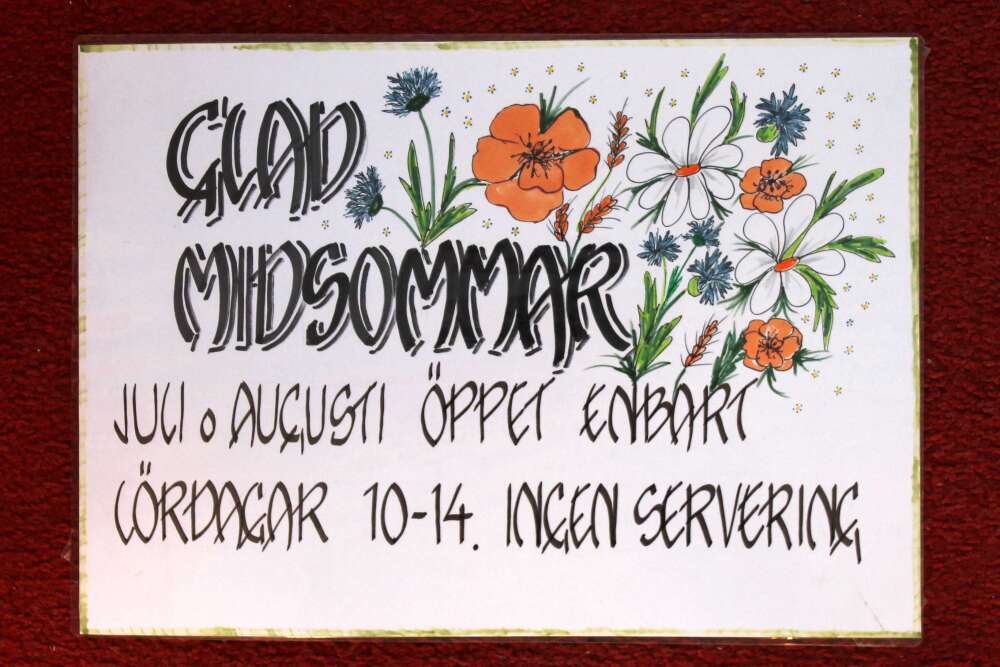 GLAD
MIDSOMMAR
JULI o AUGUSTI ÖPPET ENBART
LÖRDAGAR 10-14. INGEN SERVERING